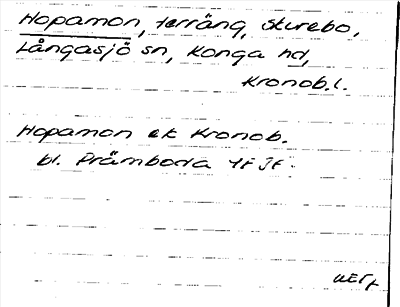 Hopamon, terräng, Sturebo,
Långasjö sn, Konga hd,
Kronob.l.
Hopamon ek Kronob.
bl. Prämboda